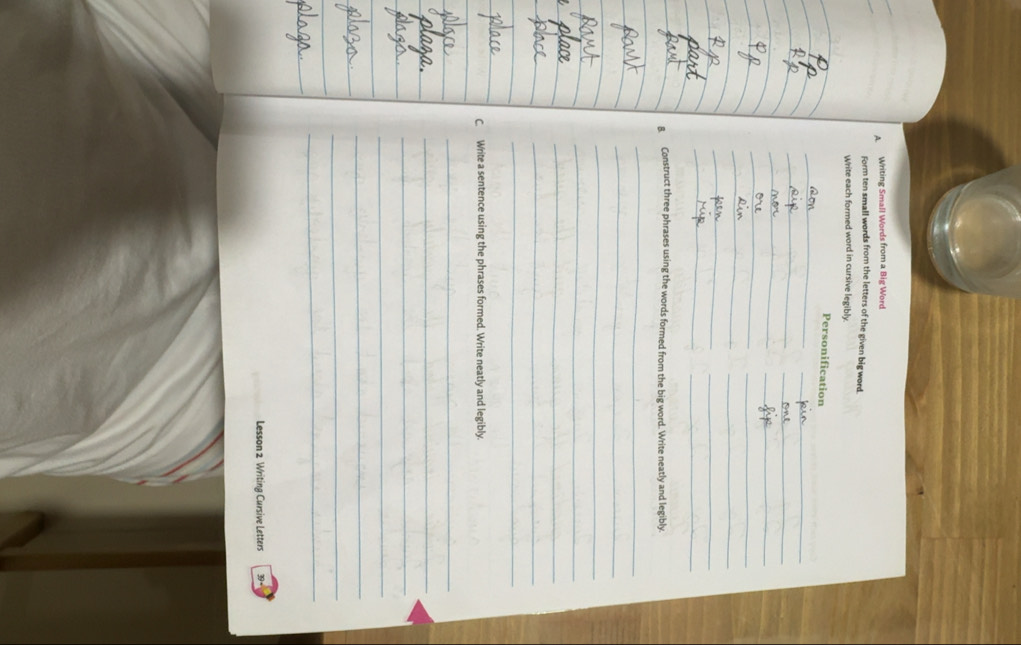 P p
P p
P p
P p
part
part
part
part
place
place
place
place
plaza.
plaza.
plaza.
plaza.
A. Writing Small Words from a Big Word
Form ten small words from the letters of the given big word.
Write each formed word in cursive legibly.
Personification
son pin
sip one
nor sip
ore
sin
pen
rip
B. Construct three phrases using the words formed from the big word. Write neatly and legibly.
C. Write a sentence using the phrases formed. Write neatly and legibly.
Lesson 2 Writing Cursive Letters 39